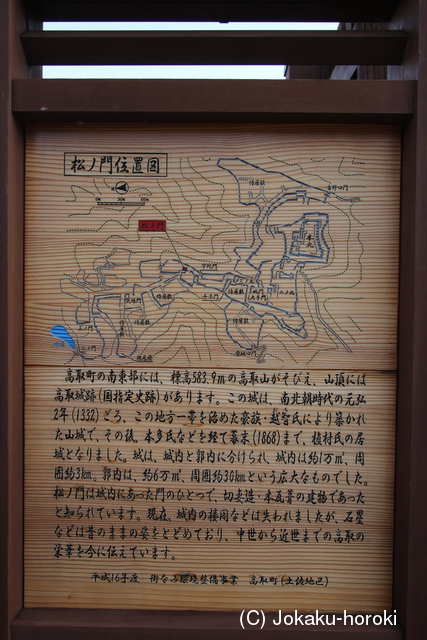 松ノ門位置図
松ノ門
本丸
二ノ丸
侍屋敷
侍屋敷
侍屋敷
侍屋敷
千早門
宇陀門
高取町の南東部には、標高583.9mの高取山がそびえ、山頂には
高取城跡(国指定史跡)があります。この城は、南北朝時代の元弘
2年(1332)ごろ、この地方一帯を治めた豪族・越智氏により築かれ
た山城で、その後、本多氏などを経て幕末(1868)まで、植村氏の居
城となりました。城は、城内と郭内に分けられ、城内は約1万㎡、周
囲約3km。郭内は、約6万㎡、周囲約30kmという広大なものでした。
松ノ門は城内にあった門のひとつで、切妻造・本瓦葺の建物であった
と知られています。現在、城内の楼閣などは失われましたが、石塁
などは昔のままの姿をとどめており、中世から近世までの高取の
栄華を今に伝えています。
平成16年度 街なみ環境整備事業 高取町(土佐地区)
(C) Jokaku-horoki